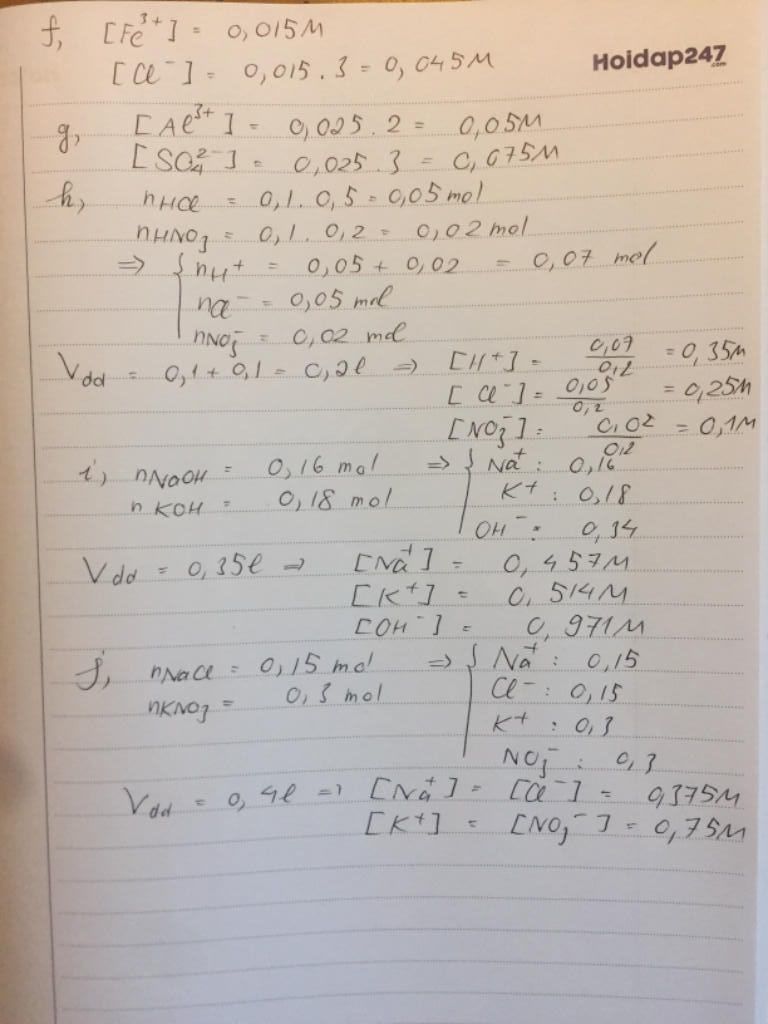 f, [Fe³⁺] = 0,015M
Hoidap247.com
[Cl⁻] = 0,015 . 3 = 0,045M
g, [Al³⁺] = 0,025 . 2 = 0,05M
[SO₄²⁻] = 0,025 . 3 = 0,075M
h, nHCl = 0,1 . 0,5 = 0,05 mol
nHNO₃ = 0,1 . 0,2 = 0,02 mol
=> { nH⁺ = 0,05 + 0,02 = 0,07 mol
nCl⁻ = 0,05 mol
nNO₃⁻ = 0,02 mol
Vdd = 0,1 + 0,1 = 0,2l => [H⁺] = 0,07/0,2 = 0,35M
[Cl⁻] = 0,05/0,2 = 0,25M
[NO₃⁻] = 0,02/0,2 = 0,1M
i, nNaOH = 0,16 mol => { Na⁺ : 0,16
nKOH = 0,18 mol K⁺ : 0,18
OH⁻ : 0,34
Vdd = 0,35l => [Na⁺] = 0,457M
[K⁺] = 0,514M
[OH⁻] = 0,971M
j, nNaCl = 0,15 mol => { Na⁺ : 0,15
nKNO₃ = 0,3 mol Cl⁻ : 0,15
K⁺ : 0,3
NO₃⁻ : 0,3
Vdd = 0,4l => [Na⁺] = [Cl⁻] = 0,375M
[K⁺] = [NO₃⁻] = 0,75M